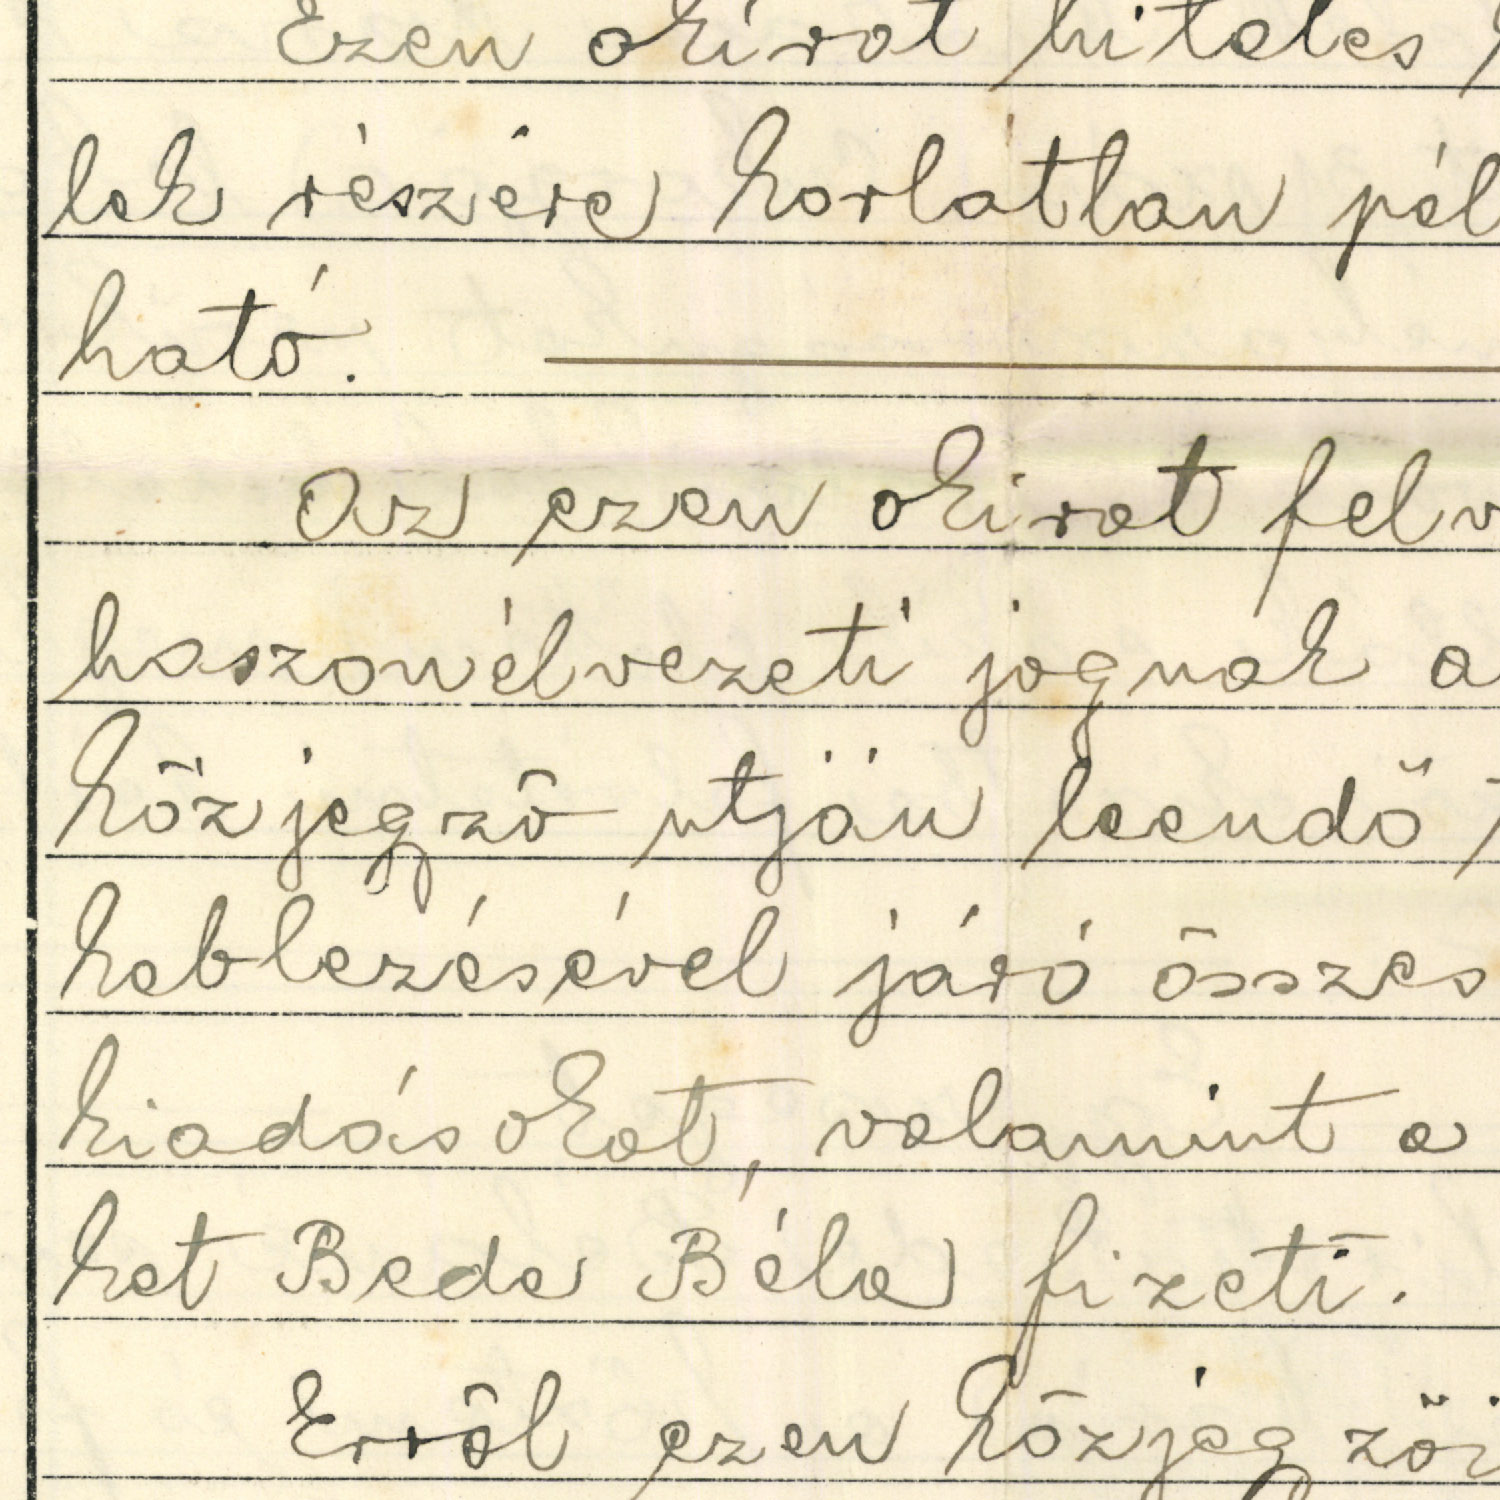 Ezen okirat hiteles
lek részére korlátlan pél
ható.
Az ezen okirat felv
haszonélvezeti jognak a
közjegyző utján leendő
keblezésével járó összes
kiadásokat, valamint a
ket Bede Béla fizeti.
Erről ezen közjegyzői